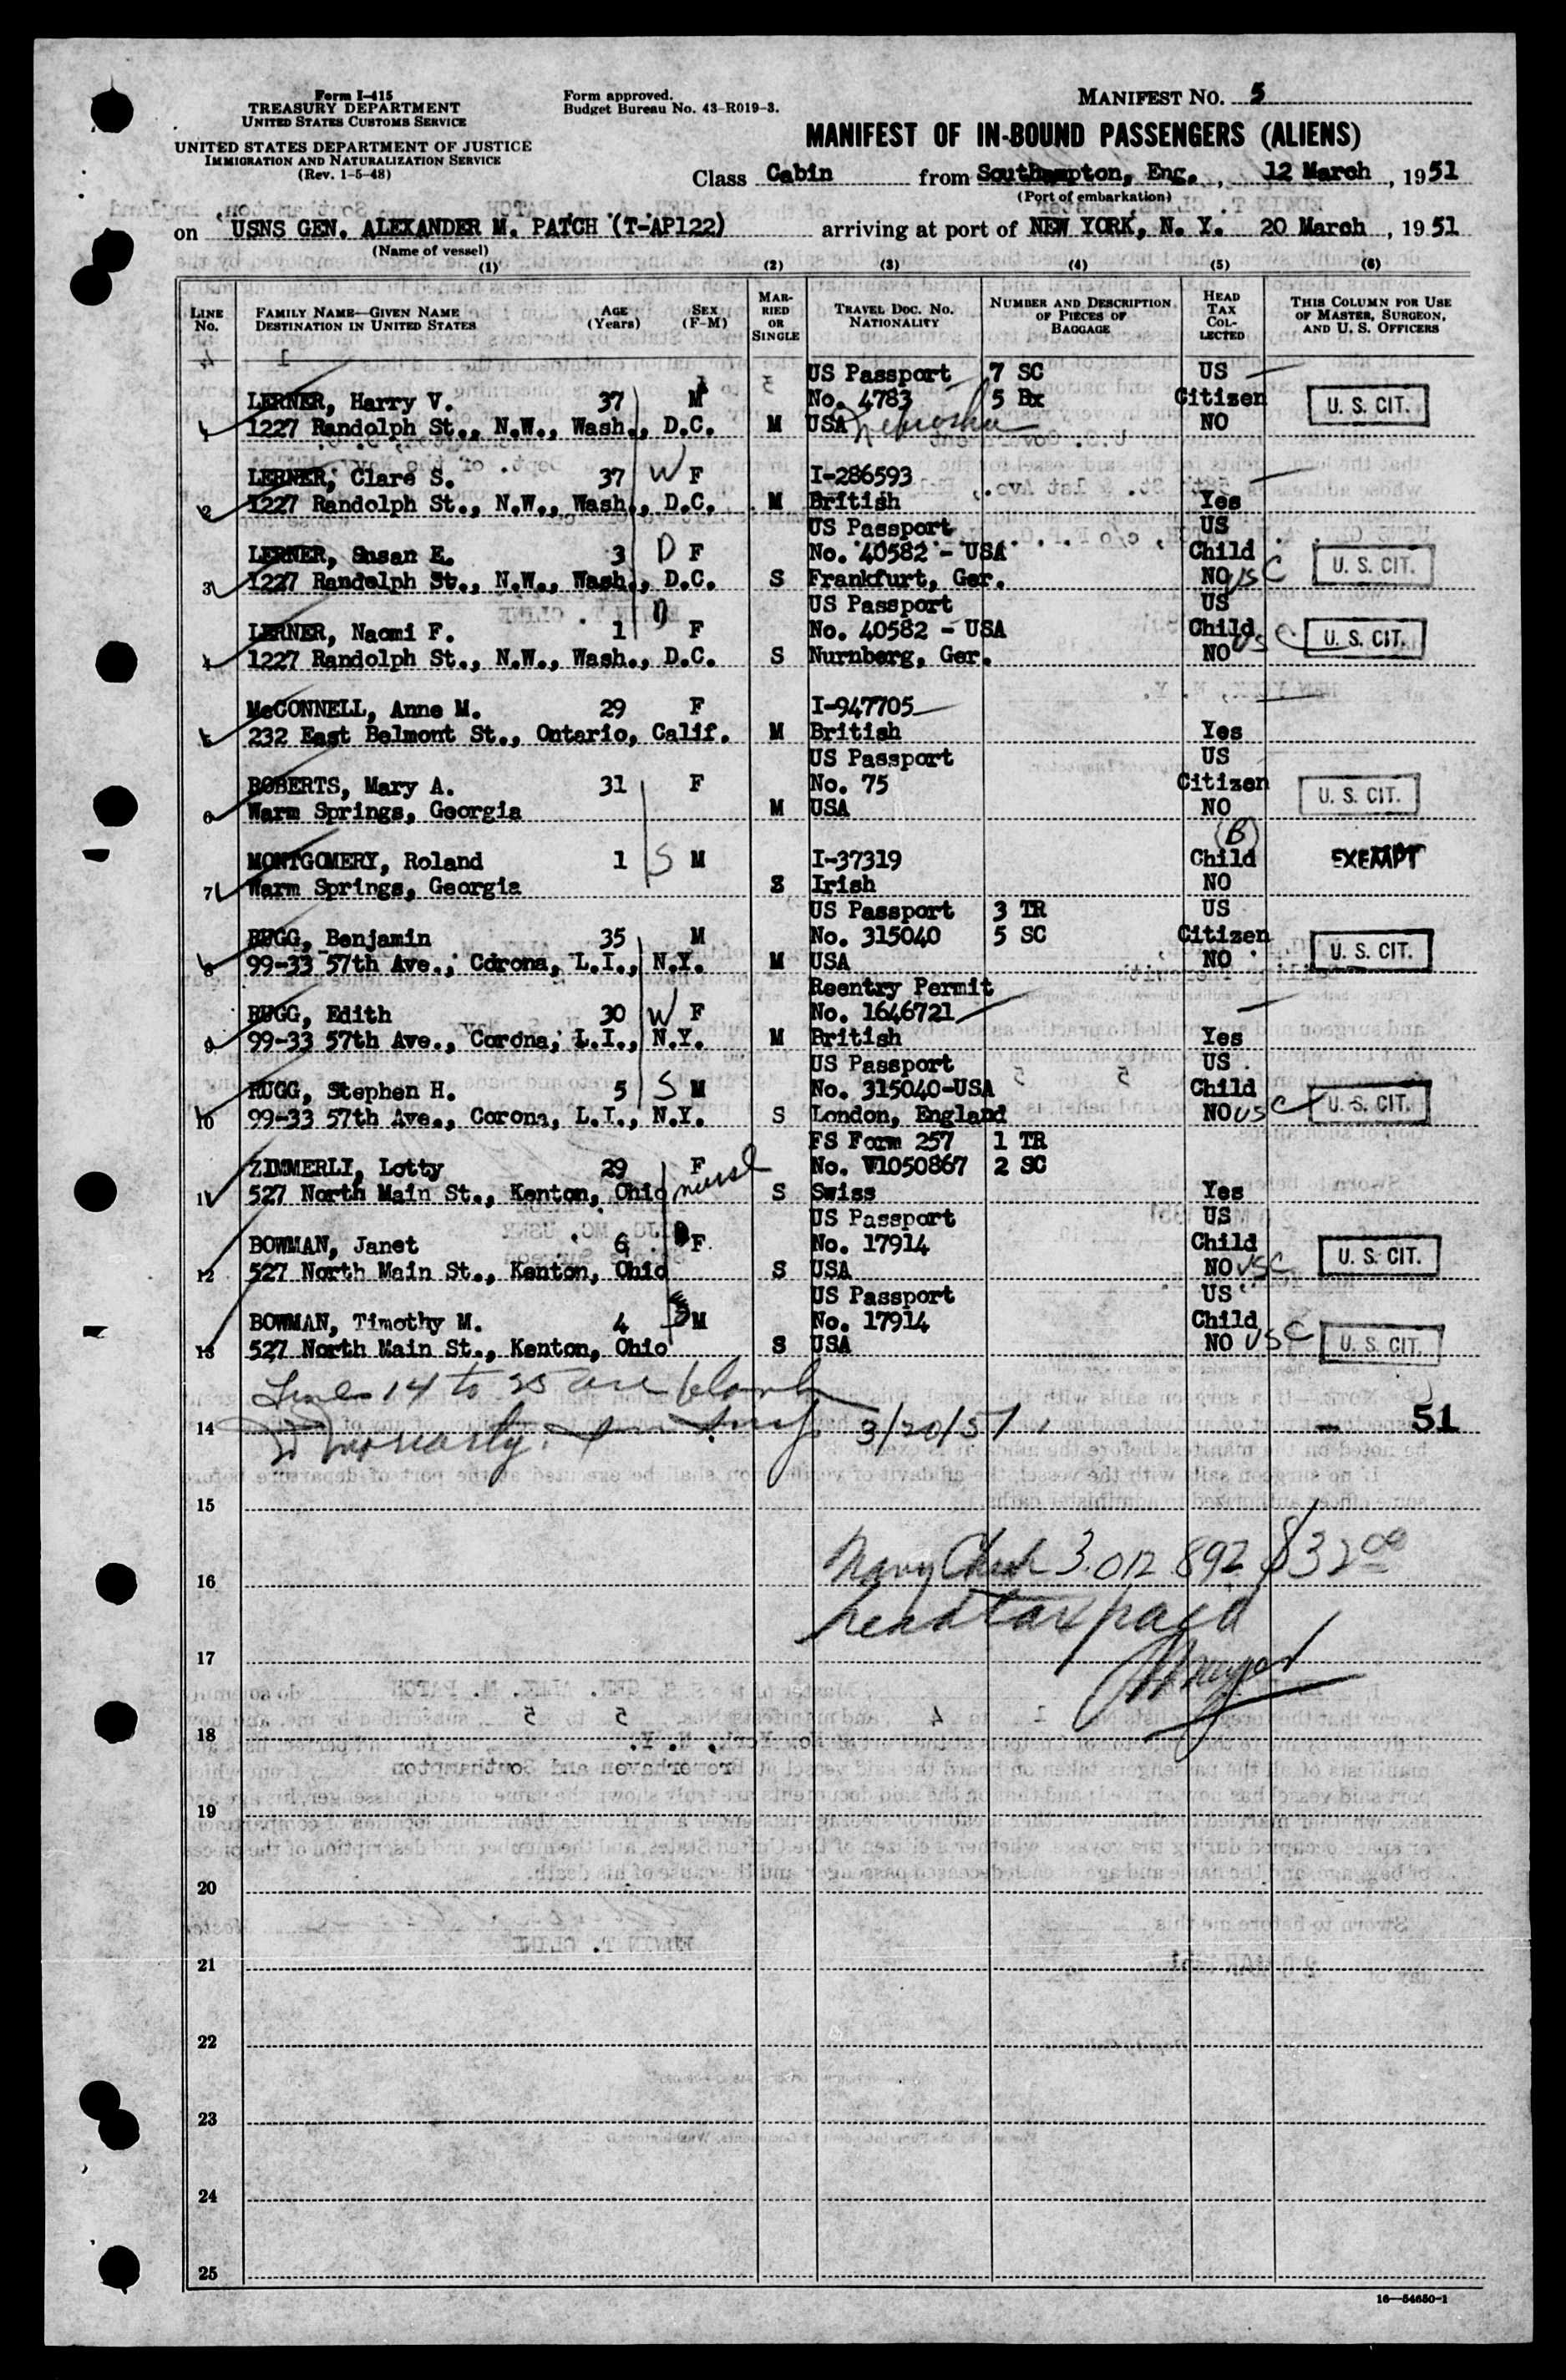 Form I-415
TREASURY DEPARTMENT
UNITED STATES CUSTOMS SERVICE
UNITED STATES DEPARTMENT OF JUSTICE
IMMIGRATION AND NATURALIZATION SERVICE
(Rev. 1-5-48)
Form approved.
Budget Bureau No. 43-R019-3.
MANIFEST NO. 5
MANIFEST OF IN-BOUND PASSENGERS (ALIENS)
Class Cabin from Southampton, Eng., 12 March, 1951
(Port of embarkation)
on USNS GEN. ALEXANDER M. PATCH (T-AP122) arriving at port of NEW YORK, N. Y. 20 March, 1951
(Name of vessel)
(1) (2) (3) (4) (5) (6)
LINE No. FAMILY NAME—GIVEN NAME DESTINATION IN UNITED STATES AGE (Years) SEX (F-M) MARRIED OR SINGLE TRAVEL DOC. NO. NATIONALITY NUMBER AND DESCRIPTION OF PIECES OF BAGGAGE HEAD TAX COLLECTED THIS COLUMN FOR USE OF MASTER, SURGEON, AND U. S. OFFICERS
US Passport 7 SC US
LERNER, Harry V. 37 M No. 4783 5 Bx Citizen U. S. CIT.
1 1227 Randolph St., N.W., Wash., D.C. M USA NO
LERNER, Clare S. 37 W F I-286593
2 1227 Randolph St., N.W., Wash., D.C. M British Yes
US Passport US
LERNER, Susan E. 3 D F No. 40582 - USA Child U. S. CIT.
3 1227 Randolph St., N.W., Wash., D.C. S Frankfurt, Ger. NO USC
US Passport US
LERNER, Naomi F. 1 D F No. 40582 - USA Child U. S. CIT.
4 1227 Randolph St., N.W., Wash., D.C. S Nurnberg, Ger. NO USC
McCONNELL, Anne M. 29 F I-947705
5 232 East Belmont St., Ontario, Calif. M British Yes
US Passport US
ROBERTS, Mary A. 31 F No. 75 Citizen U. S. CIT.
6 Warm Springs, Georgia M USA NO
(B)
MONTGOMERY, Roland 1 S M I-37319 Child EXEMPT
7 Warm Springs, Georgia S Irish NO
US Passport 3 TR US
RUGG, Benjamin 35 M No. 315040 5 SC Citizen U. S. CIT.
8 99-33 57th Ave., Corona, L.I., N.Y. M USA NO
Reentry Permit
RUGG, Edith 30 W F No. 1646721
9 99-33 57th Ave., Corona, L.I., N.Y. M British Yes
US Passport US
RUGG, Stephen H. 5 S M No. 315040-USA Child U. S. CIT.
10 99-33 57th Ave., Corona, L.I., N.Y. S London, England NO USC
FS Form 257 1 TR
ZIMMERLI, Lotty 29 F No. V1050867 2 SC
11 527 North Main St., Kenton, Ohio nurse S Swiss Yes
US Passport US
BOWMAN, Janet 6 F No. 17914 Child U. S. CIT.
12 527 North Main St., Kenton, Ohio S USA NO USC
US Passport US
BOWMAN, Timothy M. 4 M No. 17914 Child
13 527 North Main St., Kenton, Ohio S USA NO USC U. S. CIT.
Lines 14 to 25 are blank
14 3/20/51 51
15
Navy Check 3.012 892 $32.00
16
head tax paid
17
18
19
20
21
22
23
24
25
16—54650-1